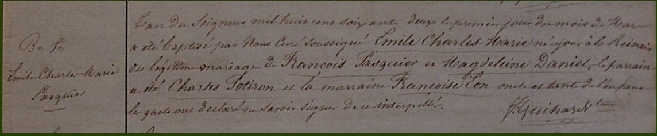 L'an du Seigneur mil huit cent soixante deux le premier jour du mois de Mars
a été baptisé par Nous Curé soussigné Emile Charles Marie né hier à la
du légitime mariage de François Pasquier et Magdeleine Daniel, le parrain
a été Charles Potiron et la marraine Françoise oncle et tante de l'enfant
lesquels ont déclaré ne savoir signer de ce interpellés.
Emile-Charles-Marie
Pasquier